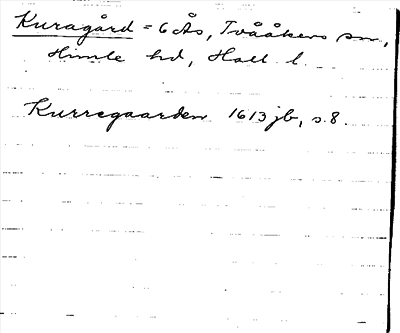 Kuragård = 6 Ås, Tvååkers sn,
Himle hd, Hall. l.
Kurregaarden 1613 jb, s. 8.